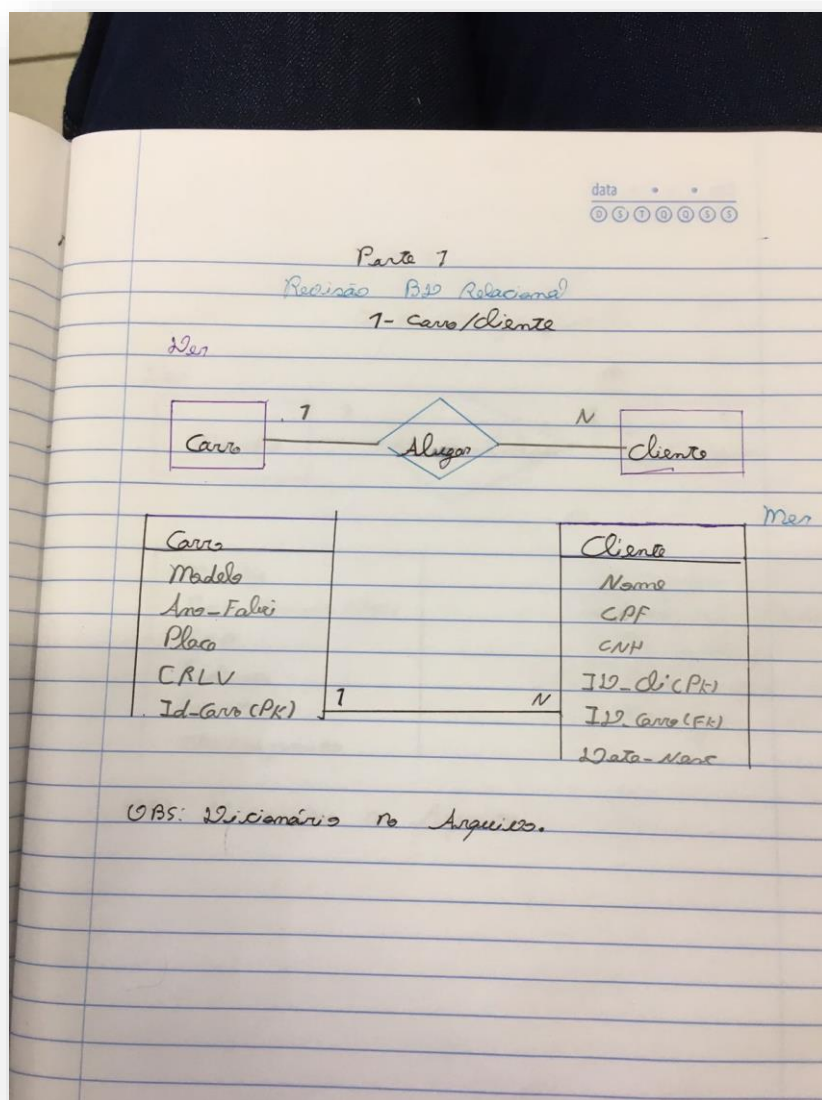 data
D S T Q Q S S
Parte 1
Revisão BD Relacional
1- Carro/Cliente
Der
Carro 1 Alugar N Cliente
Mer
Carro
Modelo
Ano-Fabri
Placa
CRLV
Id-Carro (PK)
1 N
Cliente
Nome
CPF
CNH
ID-Cli (PK)
ID-Carro (FK)
Data-Nasc
OBS: Dicionário no Arquivo.